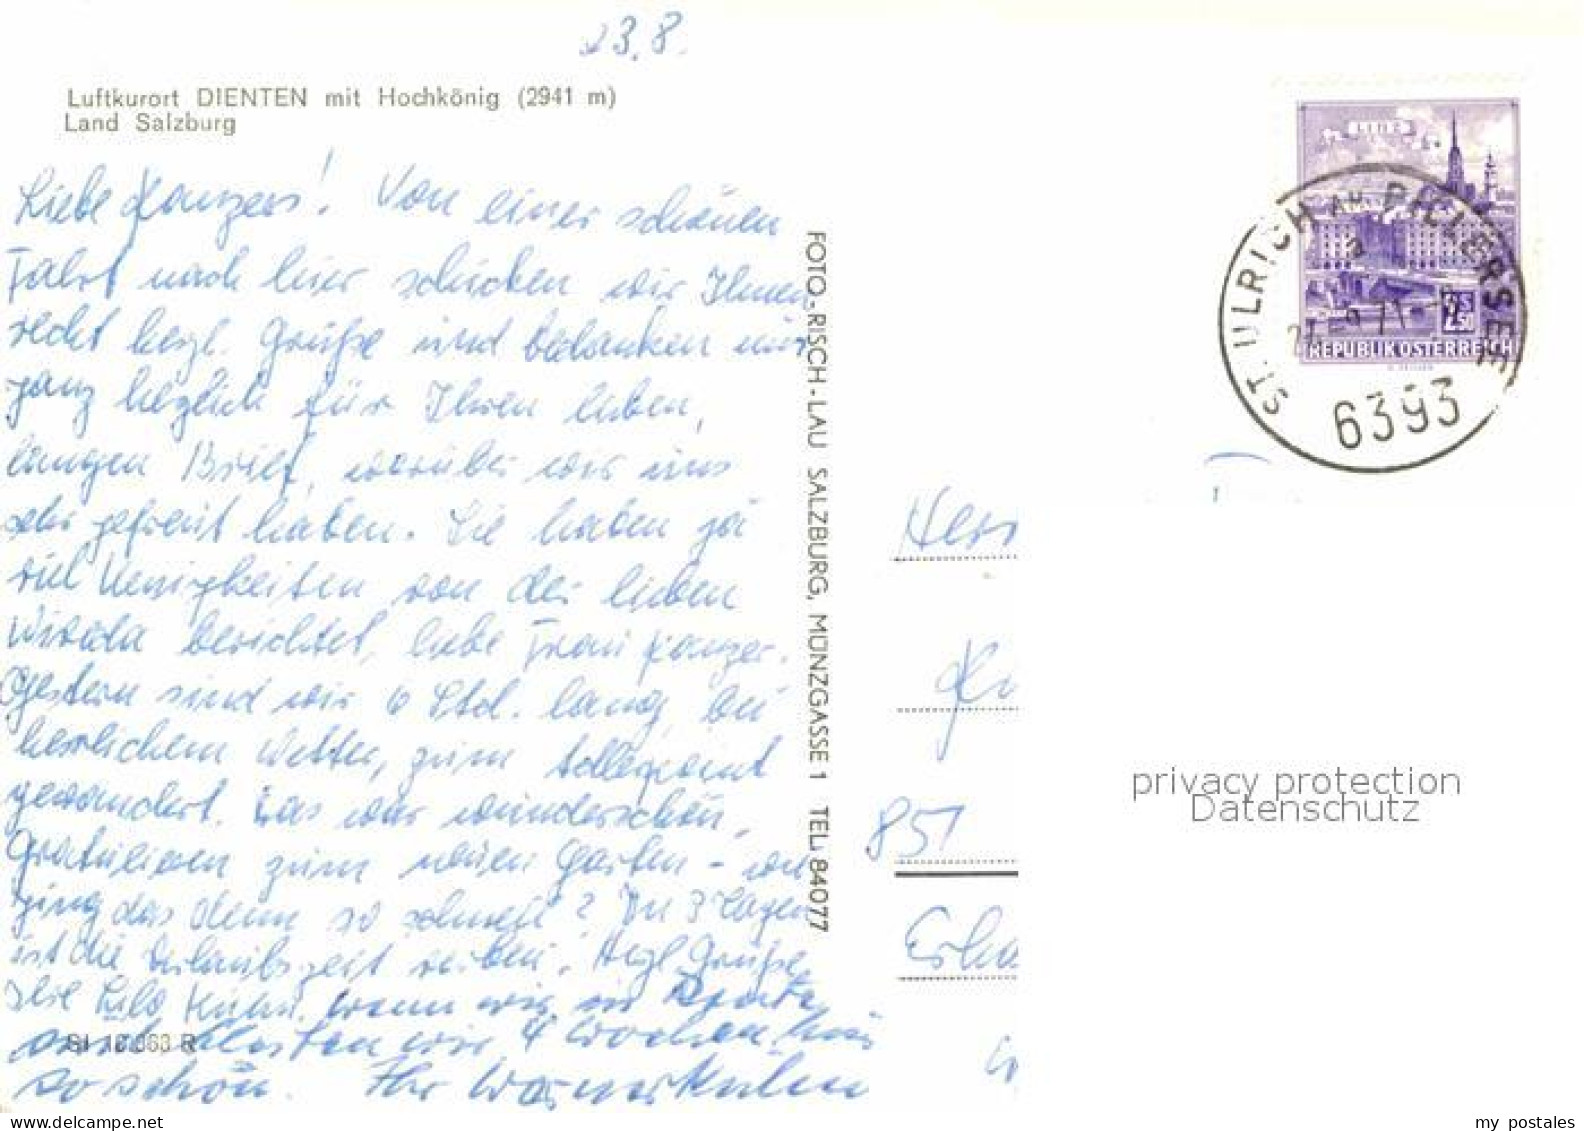 23.8.
Luftkurort DIENTEN mit Hochkönig (2941 m)
Land Salzburg
Liebe Panzers! Von einer schönen
Fahrt nach hier schicken wir Ihnen
recht herzl. Grüße und bedanken uns
ganz herzlich für Ihren lieben,
langen Brief, worüber wir uns
sehr gefreut haben. Sie haben ja
viel Neuigkeiten von der lieben
berichtet, liebe Frau Panzer.
Gestern sind wir 6 Std. lang, bei
herrlichem Wetter, zum
gewandert. Das war wunderschön.
Gratulieren zum neuen Garten - wie
ging das denn so schnell? In 3 Tagen
ist die Urlaubszeit vorbei. Herzl. Grüße
Ihre
wenn wir in
4 Wochen
so schön. Ihr
SI 10 063 R
FOTO-RISCH-LAU SALZBURG, MÜNZGASSE 1 TEL. 84077
LINZ
2.50
REPUBLIK ÖSTERREICH
ST. ULRICH AM PILLERSEE
a
6393
Herr
851
Erla
privacy protection
Datenschutz
my postales